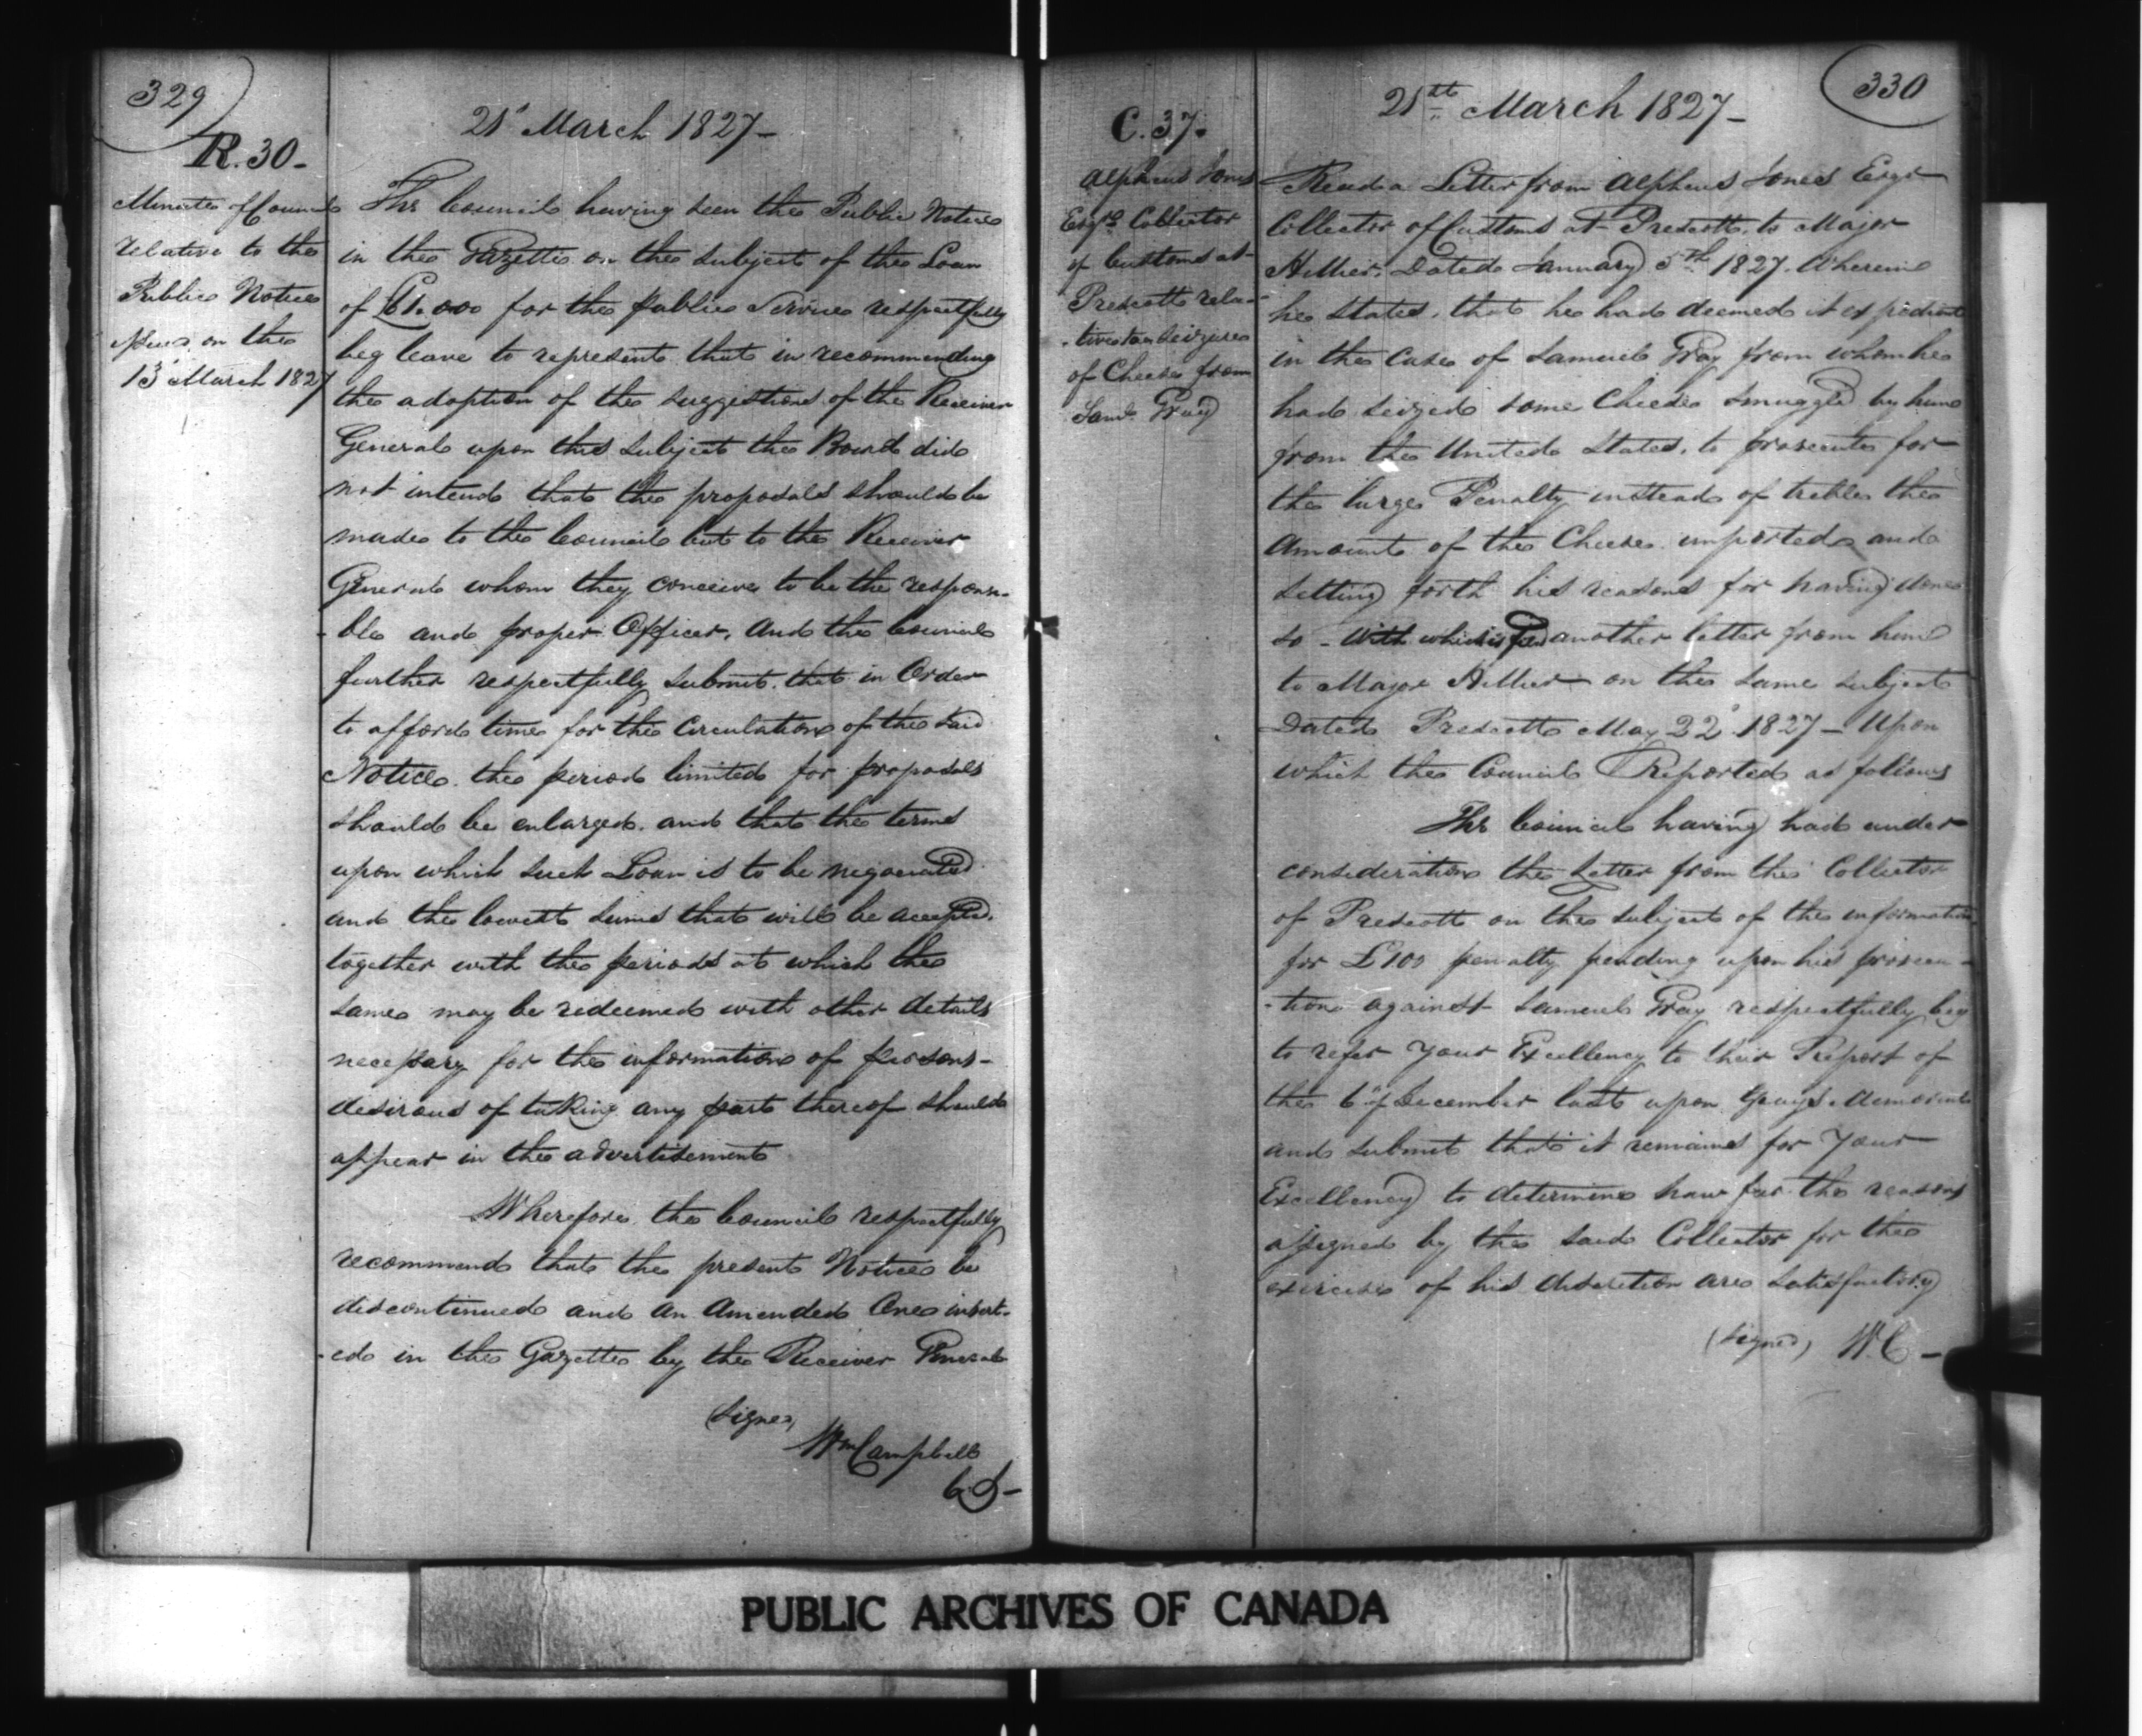 329
R.30-
Minute of Council
relative to the
Public Notice
on the
13 March 1827
21' March 1827-
The Council having seen the Public Notice
in the Gazette on the subject of the Loan
of for the public Service respectfully
beg leave to represent that in recommending
the adoption of the suggestions of the Receiver
General upon this subject the Board did
not intend that the proposals should be
made to the Council but to the Receiver
General whom they conceive to be the responsi-
-ble and proper Officer. And the Council
further respectfully submit, that in Order
to afford time for the Circulation of the said
Notice the period limited for proposals
should be enlarged. and that the terms
upon which such Loan is to be negociated
and the lowest sums that will be accepted.
together with the periods at which the
same may be redeemed with other details
necessary for the information of persons-
desirous of taking any part thereof should
appear in the advertisement
Wherefore the Council respectfully
recommend that the present Notice be
discontinued and an Amended One insert-
-ed in the Gazette by the Receiver General
(Signed)
Wm Campbell
330
C.37.
Alpheus Jones
Esqre Collector
of Customs at
Prescott rela-
-tive to a seizure
of Cheese from
Saml Gray
21st March 1827-
Read a Letter from Alpheus Jones Esqr
Collector of Customs at Prescott, to Major
Hillier. Dated January 5th 1827. Wherein
he states, that he had deemed it expedient
in the Case of Samuel Gray from whom he
had seized some Cheese smuggled by him
from the United States, to prosecute for
the large Penalty instead of treble the
Amount of the Cheese imported and
setting forth his reasons for having done
so - With which is another letter from him
to Major Hillier on the same subject
Dated Prescott May 22' 1827 - Upon
which the Council Reported as follows
The Council having had under
consideration the Letter from the Collector
of Prescott on the subject of the information
for £100 penalty pending upon his prosecu-
-tion against Samuel Gray respectfully beg
to refer Your Excellency to their Report of
the 6th of December last upon Gray's Memorial
and submit that it remains for Your
Excellency to determine how far the reasons
assigned by the said Collector for the
exercise of his discretion are satisfactory
(Signed) W.C-
PUBLIC ARCHIVES OF CANADA